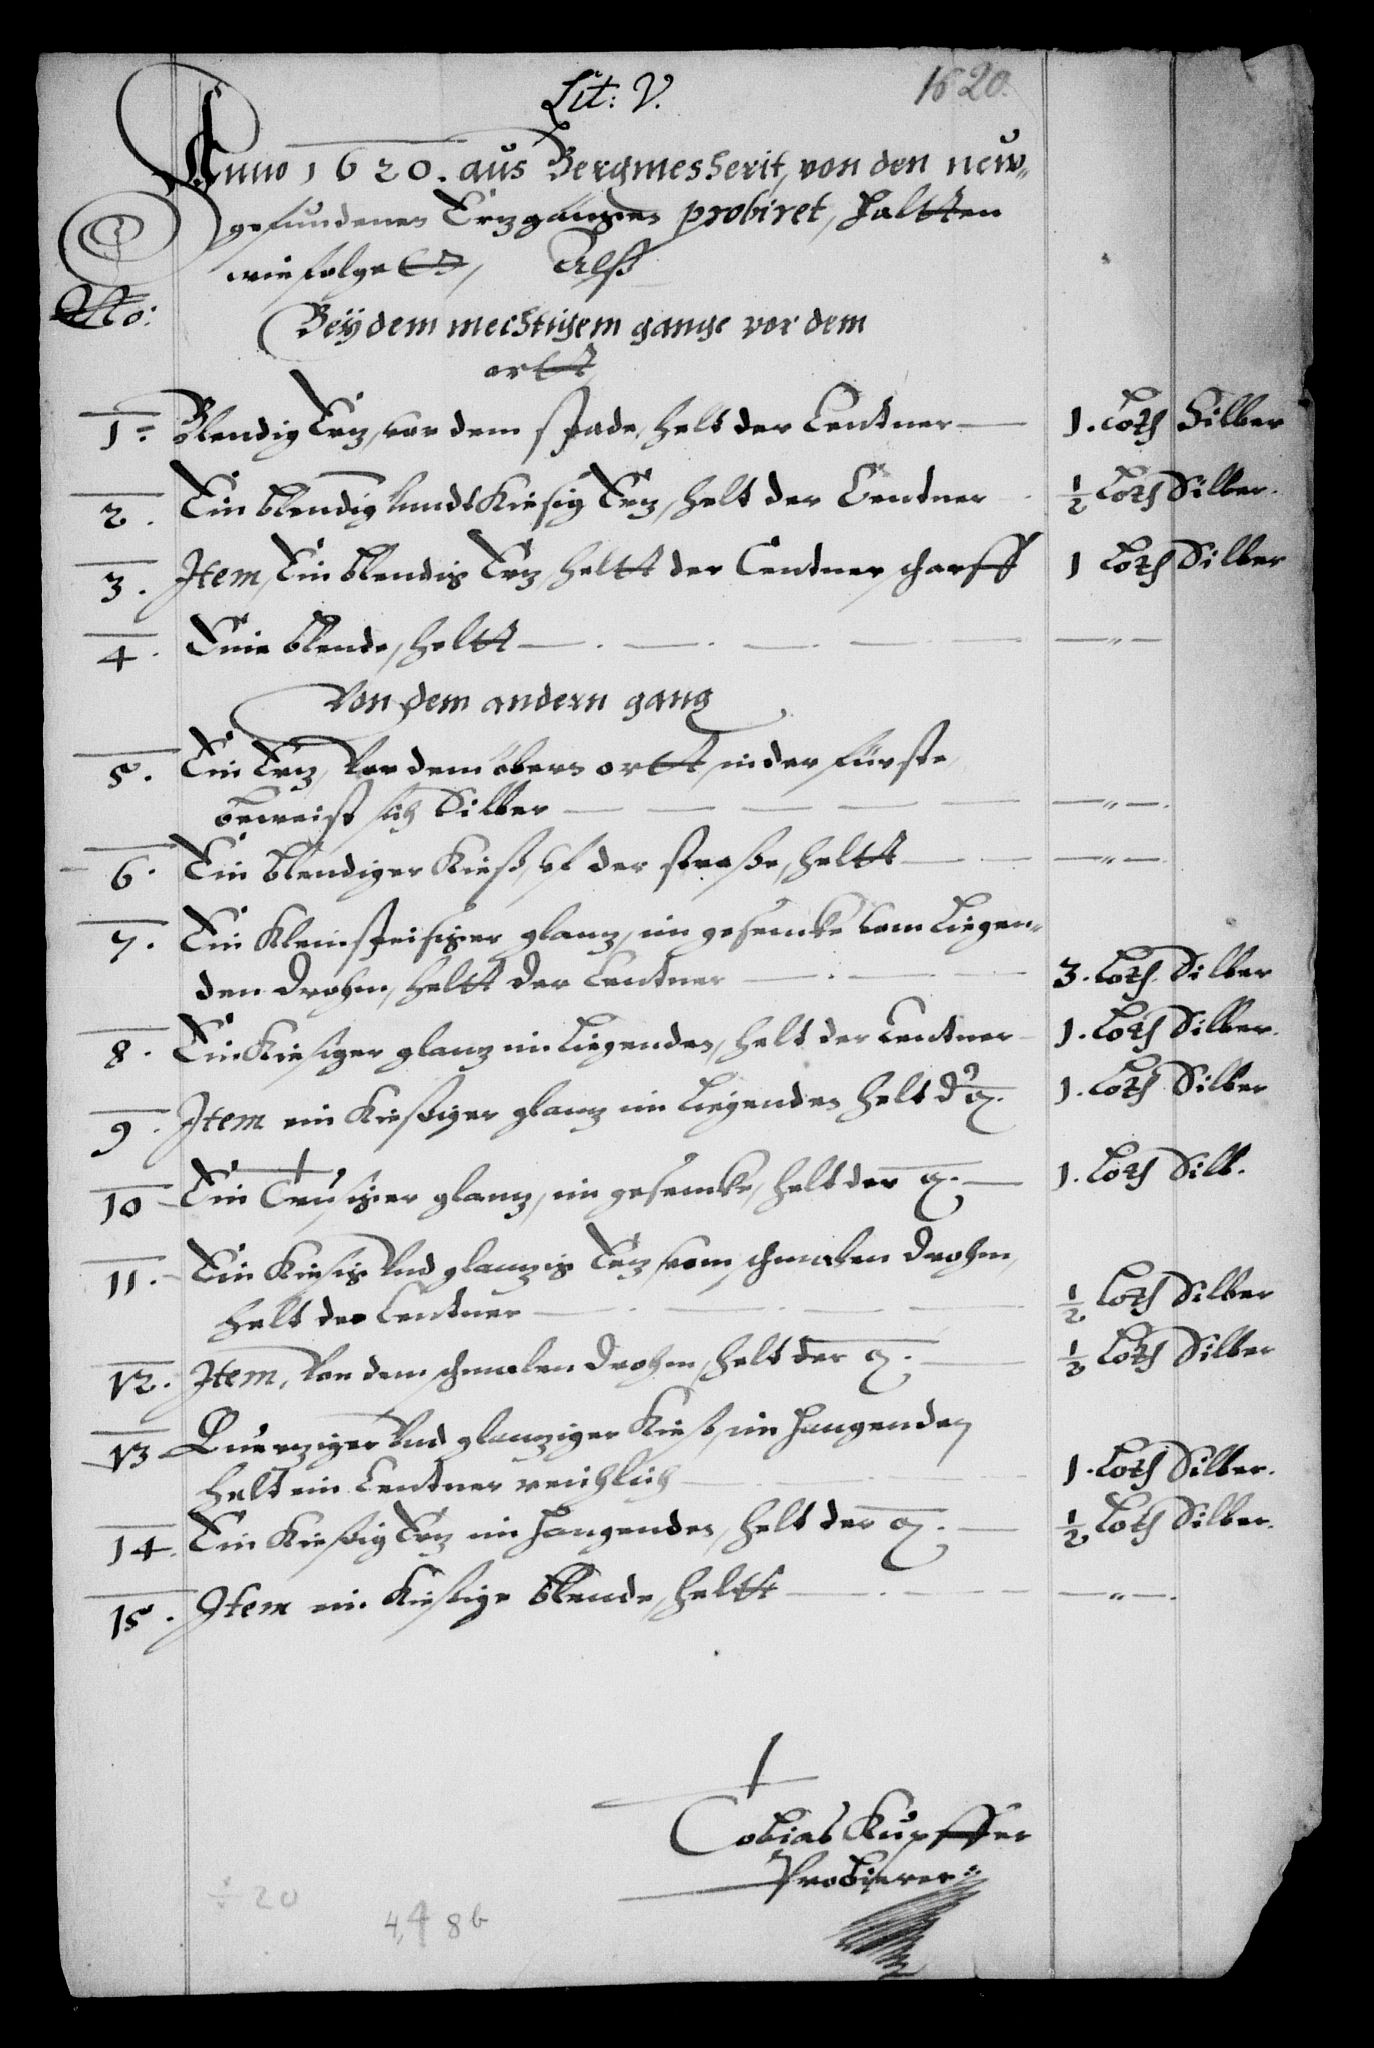 Lit: V.
1620.
Anno 1620. aus Bergmesserit, von den new-
gefundenen Ertzgängen probiret, haltten
wie folgett, Alß
No:
Beÿ dem mechtigem gange vor dem
ortt
1 Blendig Ertz, vor dem, helt der Centner — 1. Loth Silber
2. Ein blendig unndt Kiesig Ertz, helt der Centner 1/2 Loth Silber.
3. Item, Ein blendig Ertz, heltt der Centner scharff 1 Loth Silber
4. Eine blende, heltt — . — . — . — — — „ —
Von dem andern gang
5. Ein Ertz, Vor dem obern ortt, in der fürste,
beweist sich Silber — — — — — — „ — .
6. Ein blendiger Kieß, uf der straße, heltt — — — „ —
7. Ein Klein speisiger glantz, im gesencke vom Liegen-
den Drohm, heltt der Centner — . — — 3. Loth Silber
8. Ein Kiesiger glantz im Liegenden, helt der Centner 1. Loth Silber.
9. Item ein Kießiger glantz im Liegenden helt dr q. 1. Loth Silber
10 Ein glantz, im gesencke, helt der q. — 1. Loth Silb.
11. Ein Kiesig Und glantzig Ertz, vom schmalen Drohm,
helt der Centner — . — . — — 1/2 Loth Silber
12. Item, Von dem schmalen Drohm, helt der q. — 1/2 Loth Silber
13 Quertziger Und glantziger Kieß, im Hangenden
helt ein Centner reichlich — 1. Loth Silber.
14. Ein Kießig Ertz im Hangenden, helt der q. — 1/2 Loth Silber.
15. Item ein Kießige blende, heltt — . — — — — „ — .
Tobias Kupffer
Probierer
20
4,4 8b